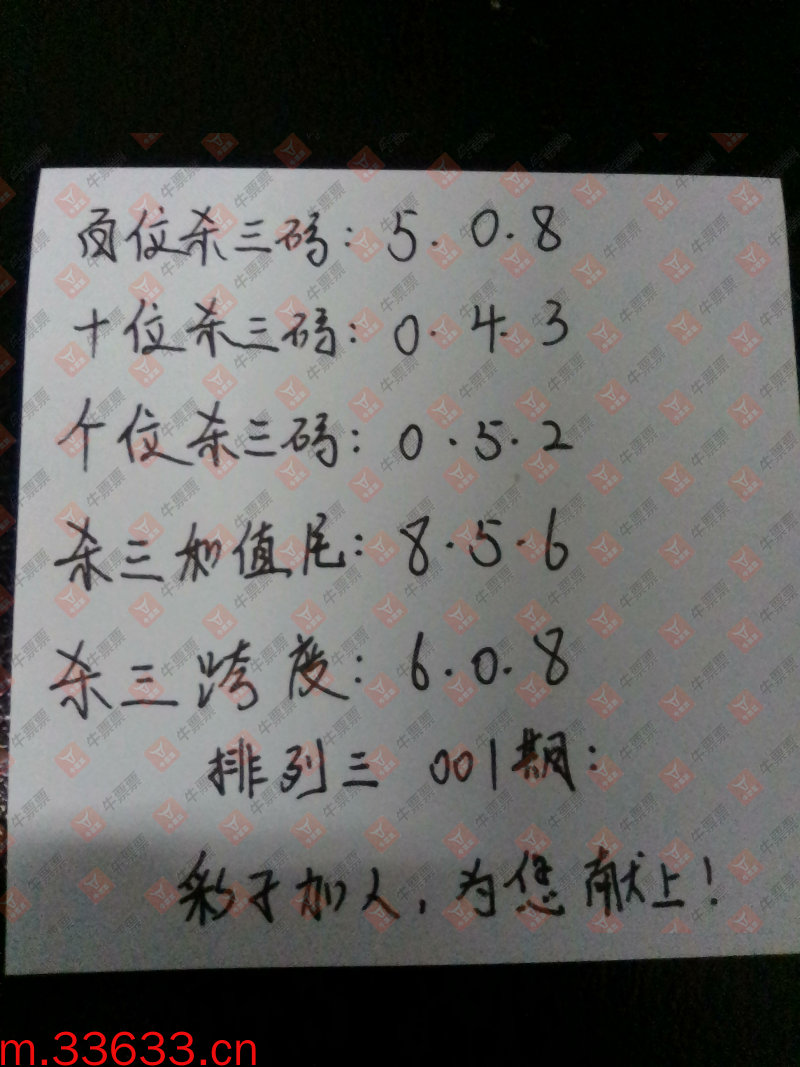 百位杀三码：5.0.8
十位杀三码：0.4.3
个位杀三码：0.5.2
杀三和值尾：8.5.6
杀三跨度：6.0.8
排列三 001期：
彩子加人，为您献上！
牛票票
m.33633.cn